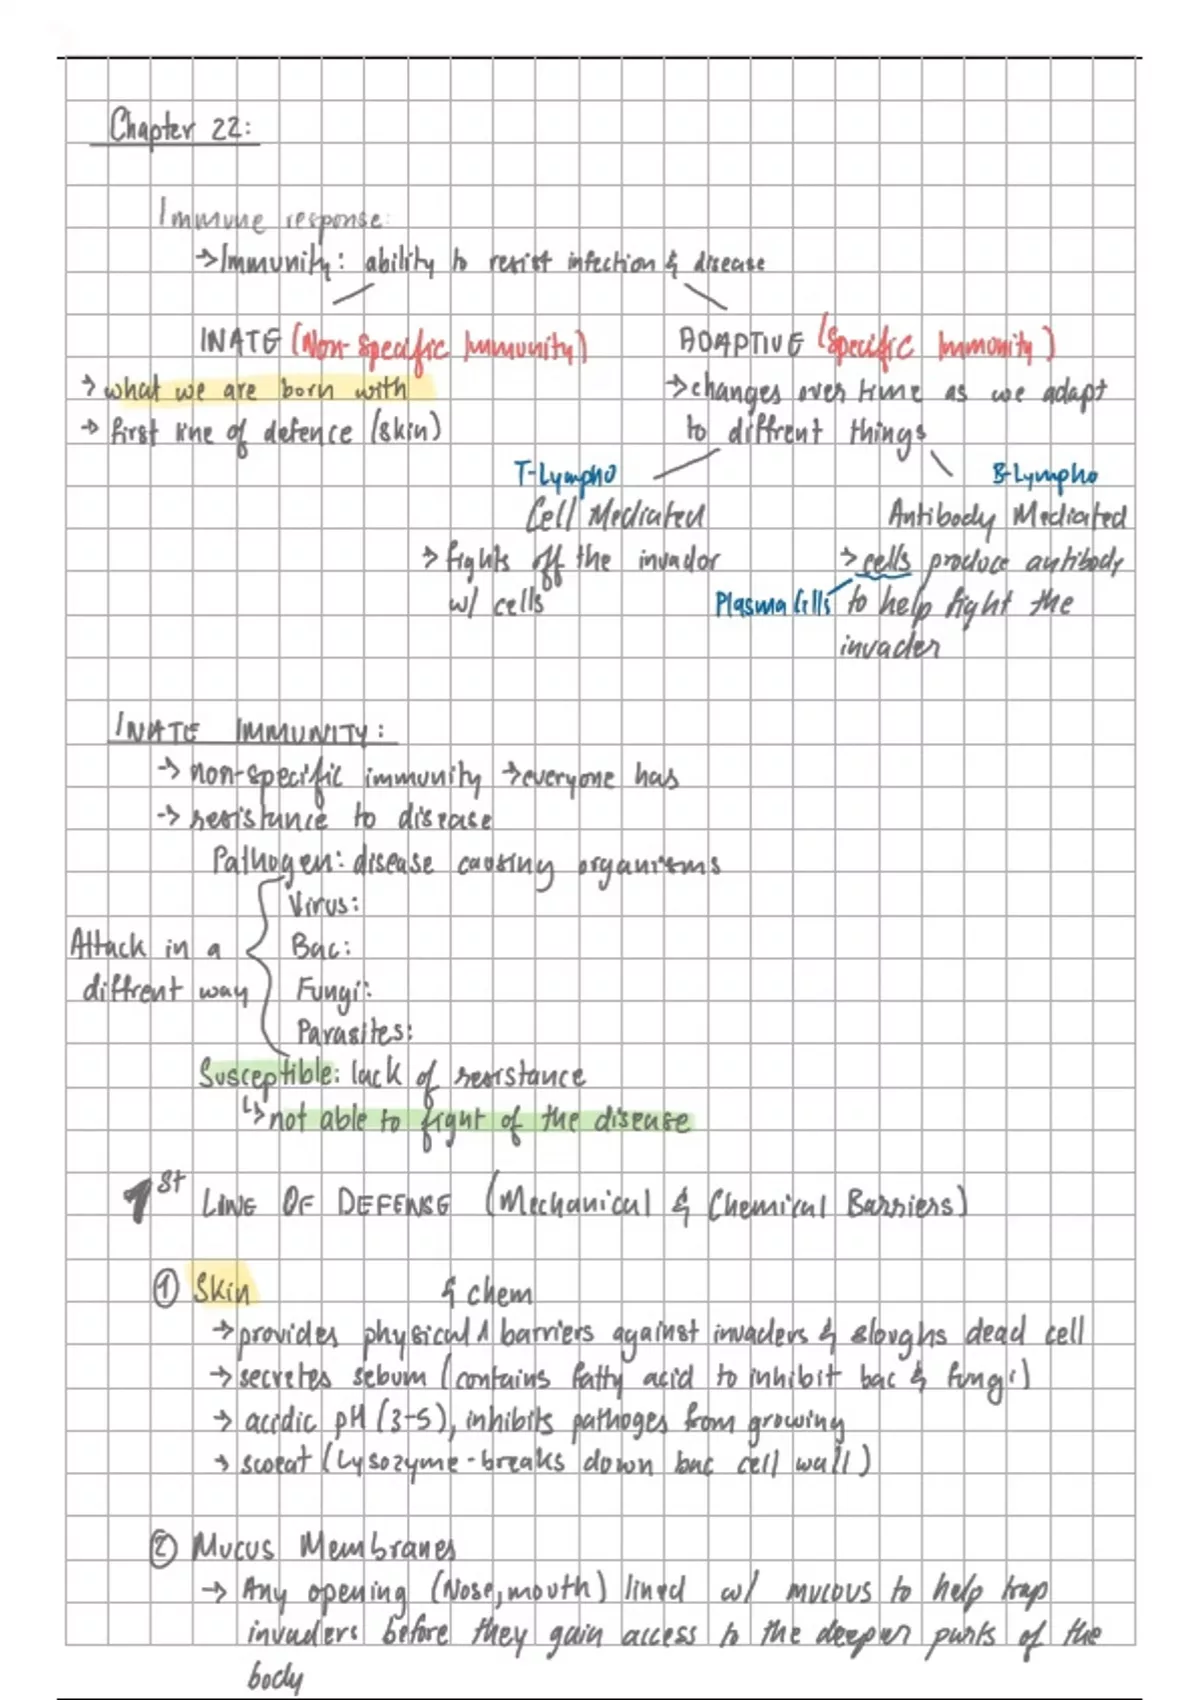 Chapter 22:
Immune response:
→Immunity: ability to resist infection & disease
INATE (Non-Specific Immunity)
ADAPTIVE (Specific Immunity)
→ what we are born with
→ first line of defence (skin)
→changes over time as we adapt
to diffrent things
T-Lympho
Cell Mediated
→ fights off the invador
w/ cells
B-Lympho
Antibody Mediated
→ cells produce antibody
Plasma Cells to help fight the
invader
INATE IMMUNITY:
→ non-specific immunity →everyone has
→ resistance to disease
Pathogen: disease causing organisms
Attack in a
diffrent way
Virus:
Bac:
Fungi:
Parasites:
Susceptible: lack of resistance
↳ not able to fight of the disease
1st LINE OF DEFENSE (Mechanical & Chemical Barriers)
① Skin
& chem
→ provides physical ^ barriers against invaders & sloughs dead cell
→ secretes sebum (contains fatty acid to inhibit bac & fungi)
→ acidic pH (3-5), inhibits pathoges from growing
→ sweat (Lysozyme - breaks down bac cell wall)
② Mucus Membranes
→ Any opening (Nose, mouth) lined w/ mucous to help trap
invaders before they gain access to the deeper parts of the
body